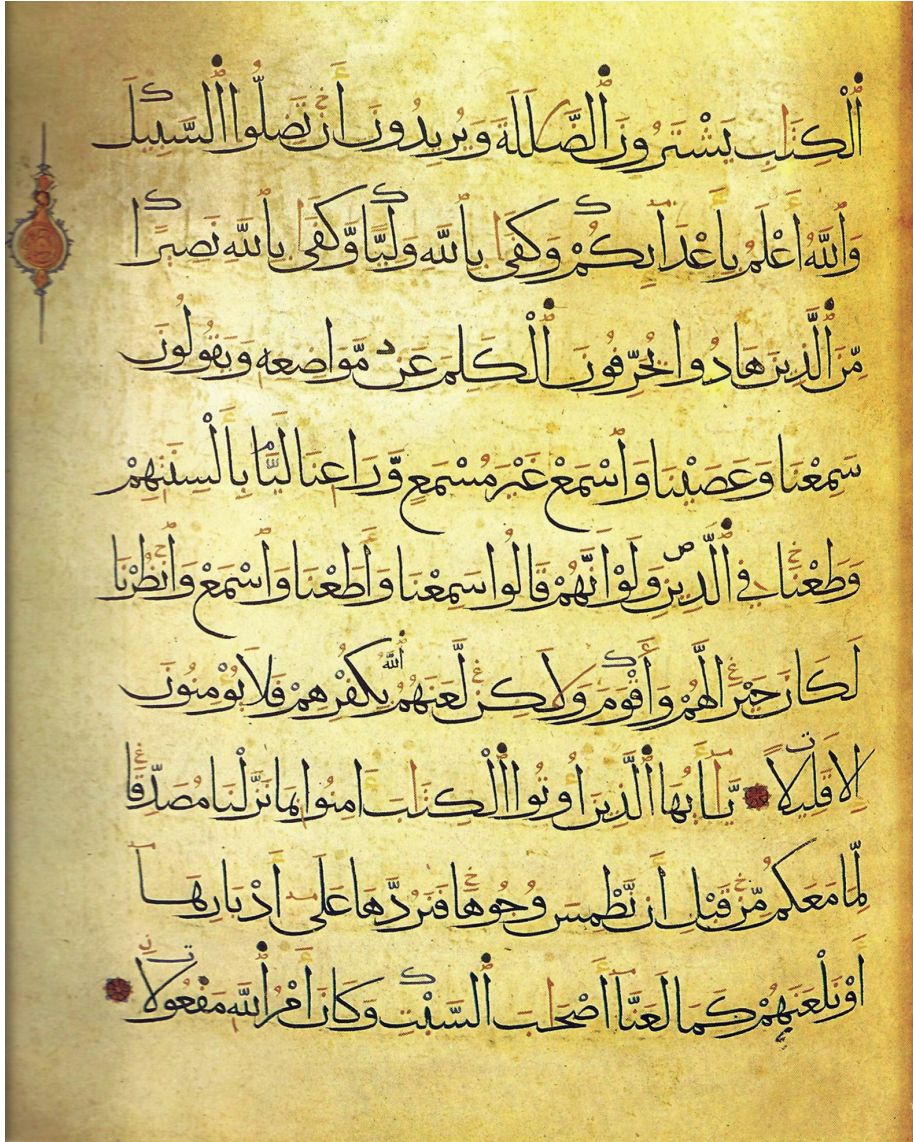 ٱلْكِتَٰبِ يَشْتَرُونَ ٱلضَّلَٰلَةَ وَيُرِيدُونَ أَن تَضِلُّوا۟ ٱلسَّبِيلَ
وَٱللَّهُ أَعْلَمُ بِأَعْدَآئِكُمْ وَكَفَىٰ بِٱللَّهِ وَلِيًّا وَكَفَىٰ بِٱللَّهِ نَصِيرًا
مِّنَ ٱلَّذِينَ هَادُوا۟ يُحَرِّفُونَ ٱلْكَلِمَ عَن مَّوَاضِعِهِ وَيَقُولُونَ
سَمِعْنَا وَعَصَيْنَا وَٱسْمَعْ غَيْرَ مُسْمَعٍ وَّرَٰعِنَا لَيًّۢا بِأَلْسِنَتِهِمْ
وَطَعْنًا فِي ٱلدِّينِ وَلَوْ أَنَّهُمْ قَالُوا۟ سَمِعْنَا وَأَطَعْنَا وَٱسْمَعْ وَٱنظُرْنَا
لَكَانَ خَيْرًا لَّهُمْ وَأَقْوَمَ وَلَٰكِن لَّعَنَهُمُ ٱللَّهُ بِكُفْرِهِمْ فَلَا يُؤْمِنُونَ
إِلَّا قَلِيلًا يَٰٓأَيُّهَا ٱلَّذِينَ أُوتُوا۟ ٱلْكِتَٰبَ ءَامِنُوا۟ بِمَا نَزَّلْنَا مُصَدِّقًا
لِّمَا مَعَكُم مِّن قَبْلِ أَن نَّطْمِسَ وُجُوهًا فَنَرُدَّهَا عَلَىٰٓ أَدْبَارِهَآ
أَوْ نَلْعَنَهُمْ كَمَا لَعَنَّآ أَصْحَٰبَ ٱلسَّبْتِ وَكَانَ أَمْرُ ٱللَّهِ مَفْعُولًا